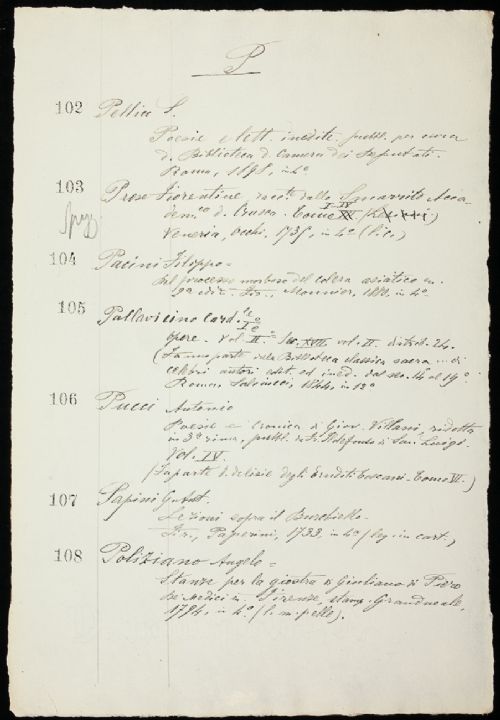 P
102 Pellico S.
Poesie e lett. inedite pubbl. per cura
d. Biblioteca d. Camera dei Deputati.
Roma, 1898, in 4º
103 Prose Fiorentine racc. dallo Smarrito Acca-
I-II
dem.co d. Crusca. Tomo
Venezia, Occhi, 1735, in 4º (l. c.)
104 Pacini Filippo =
Del processo morboso del colera asiatico
2a ediz. Fir., Monnier, 1880, in 4º.
105 Pallavicino Card.le
opere. Vol. II. Sec. XVII. vol. II. distrib. 24.
(Fanno parte della Biblioteca classica sacra ... di
celebri autori edit. ed ined. dal sec. 14 al 19º.
Roma, Salviucci, 1844, in 12º
106 Pucci Antonio
Poesie e Cronica di Giov. Villani, ridotta
in 3a rima, pubbl. da Fr. Ildefonso di San Luigi.
Vol. IV.
(Fa parte d. delizie degli Eruditi toscani. Tomo VI.)
107 Papini G.
Lezioni sopra il Burchiello.
Fir., Paperini, 1733, in 4º (leg. in cart.)
108 Poliziano Angelo =
Stanze per la giostra di Giuliano di Piero
de Medici Firenze, stamp. Granducale,
1794, in 4º. (l. m. pelle).